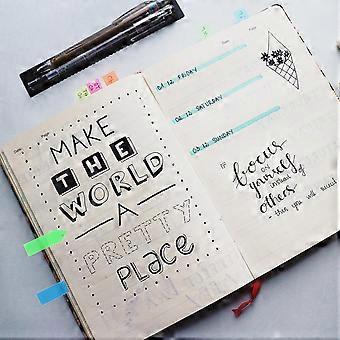 MAKE
THE
WORLD
A
PRETTY
PLACE
01.12. FRIDAY
02.12. SATURDAY
03.12. SUNDAY
IF
focus
on
yourself
instead of
others
- then you will